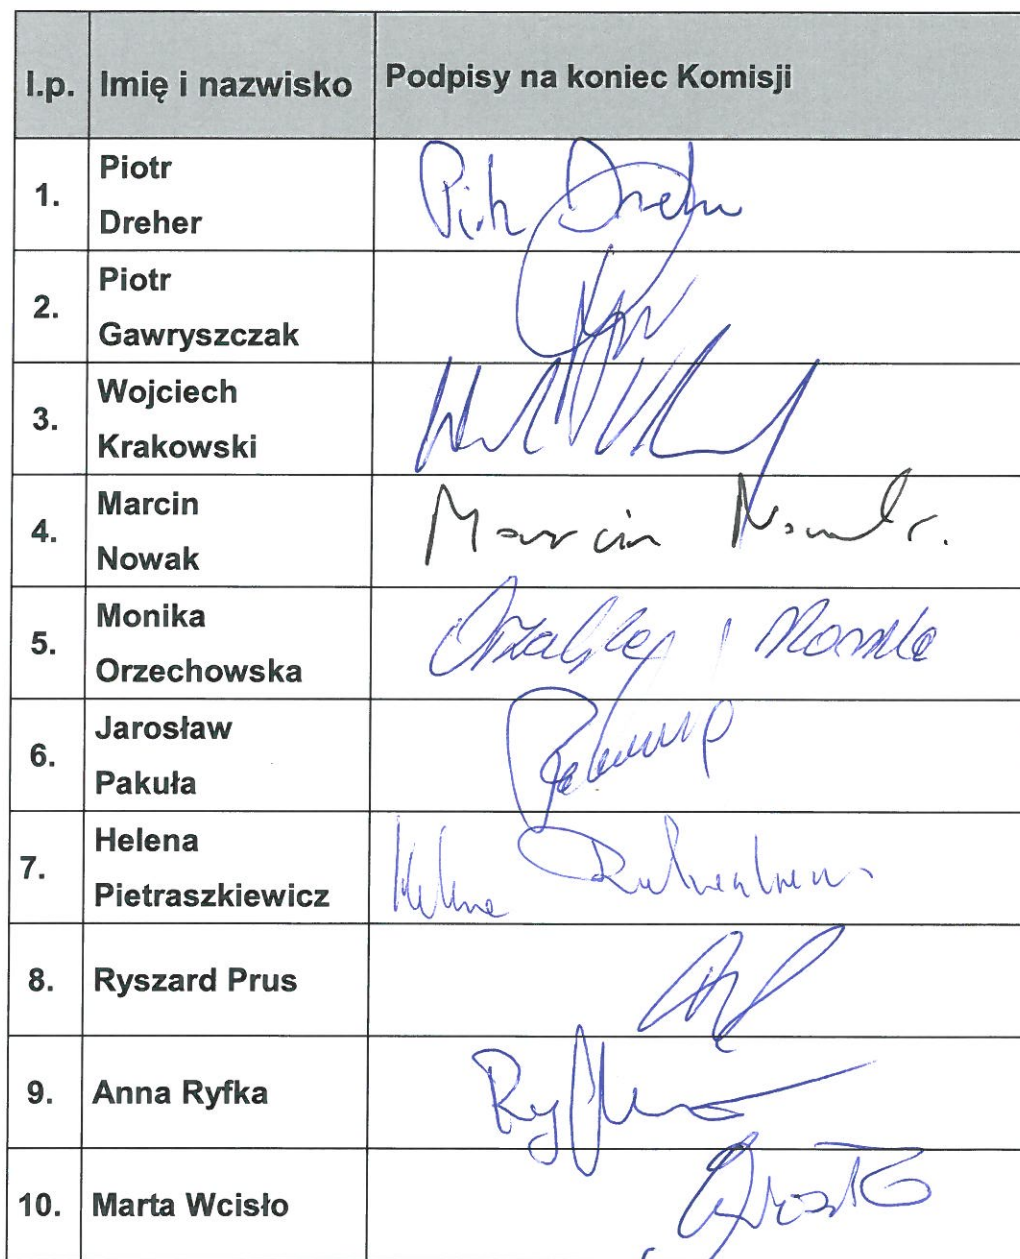 l.p. Imię i nazwisko Podpisy na koniec Komisji
1. Piotr Dreher Piotr Dreher
2. Piotr Gawryszczak
3. Wojciech Krakowski
4. Marcin Nowak Marcin Nowak.
5. Monika Orzechowska
6. Jarosław Pakuła
7. Helena Pietraszkiewicz Helena
8. Ryszard Prus
9. Anna Ryfka Ryfka
10. Marta Wcisło